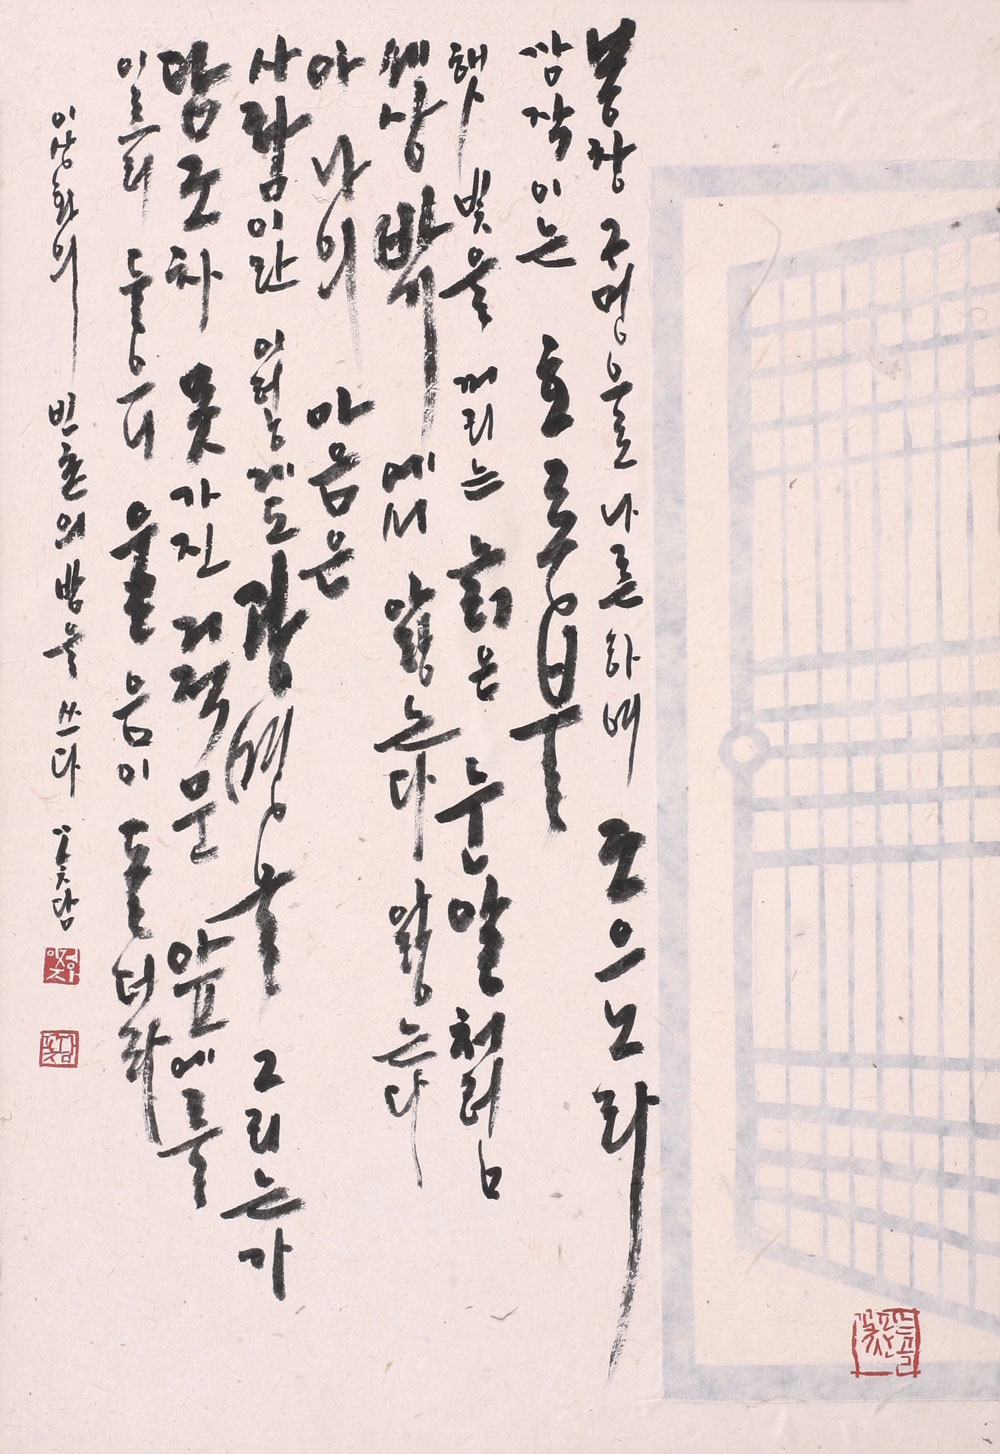 봉창 구멍으로 나른하여 조으노라
깜작이는 호롱불
햇빛을 꺼리는 늙은 눈알처럼
세상 밖에서 앓는다 앓는다
아 나의 마음은
사람이란 이렇게도 광명을 그리는가
담조차 못 가진 거적문 앞에를
이르러 들으니 울음이 돌더라
이상화의 빈촌의 밤을 쓰다 꽃담